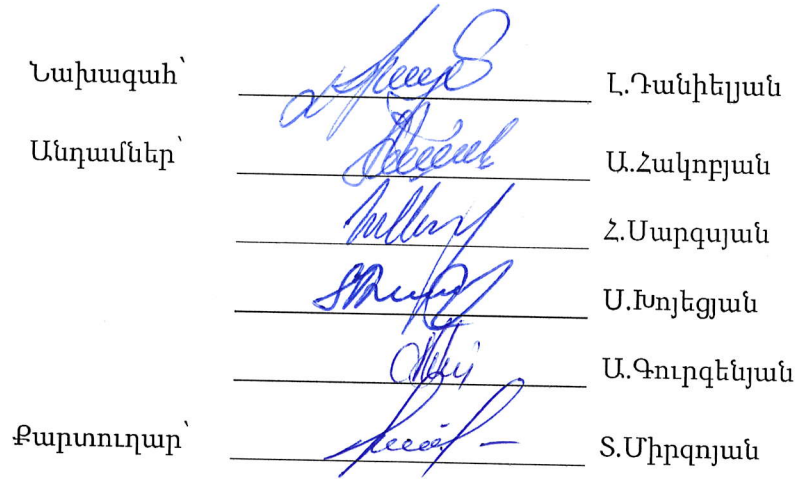 Նախագահ՝ Լ.Դանիելյան
Անդամներ՝ Ա.Հակոբյան
Հ.Սարգսյան
Ս.Խոյեցյան
Ա.Գուրգենյան
Քարտուղար՝ Տ.Միրզոյան